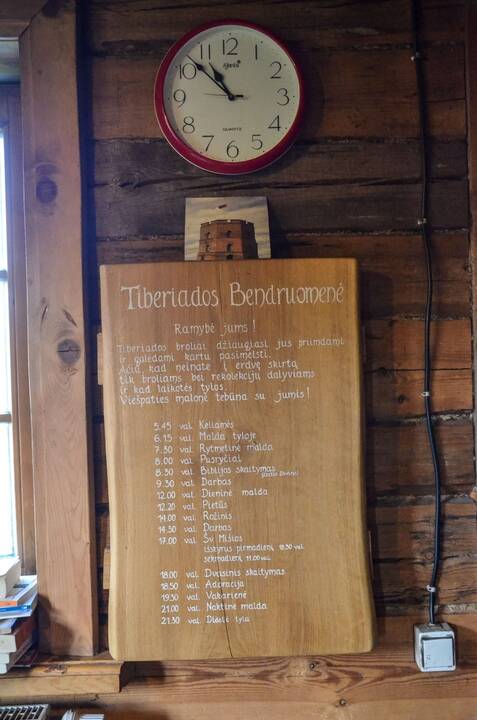 12
11
1
10
2
9
3
8
4
7
5
6
QUARTZ
Tiberiados Bendruomenė
Ramybė jums!
Tiberiados broliai džiaugiasi jus priimdami
ir galėdami kartu pasimelsti.
Ačiū, kad neinate į erdvę skirtą
tik broliams bei rekolekcijų dalyviams
ir kad laikotės tylos.
Viešpaties malonė tebūna su jumis!
5.45 val. Keliamės
6.15 val. Malda tyloje
7.30 val. Rytmetinė malda
8.00 val. Pusryčiai
8.30 val. Biblijos skaitymas
(Lectio Divina)
9.30 val. Darbas
12.00 val. Dieninė malda
12.20 val. Pietūs
14.00 val. Rožinis
14.30 val. Darbas
17.00 val. Šv. Mišios
išskyrus pirmadienį, 18.30 val.
sekmadienį, 11.00 val.
18.00 val. Dvasinis skaitymas
18.50 val. Adoracija
19.30 val. Vakarienė
21.00 val. Naktinė malda
21.30 val. Didelė tyla